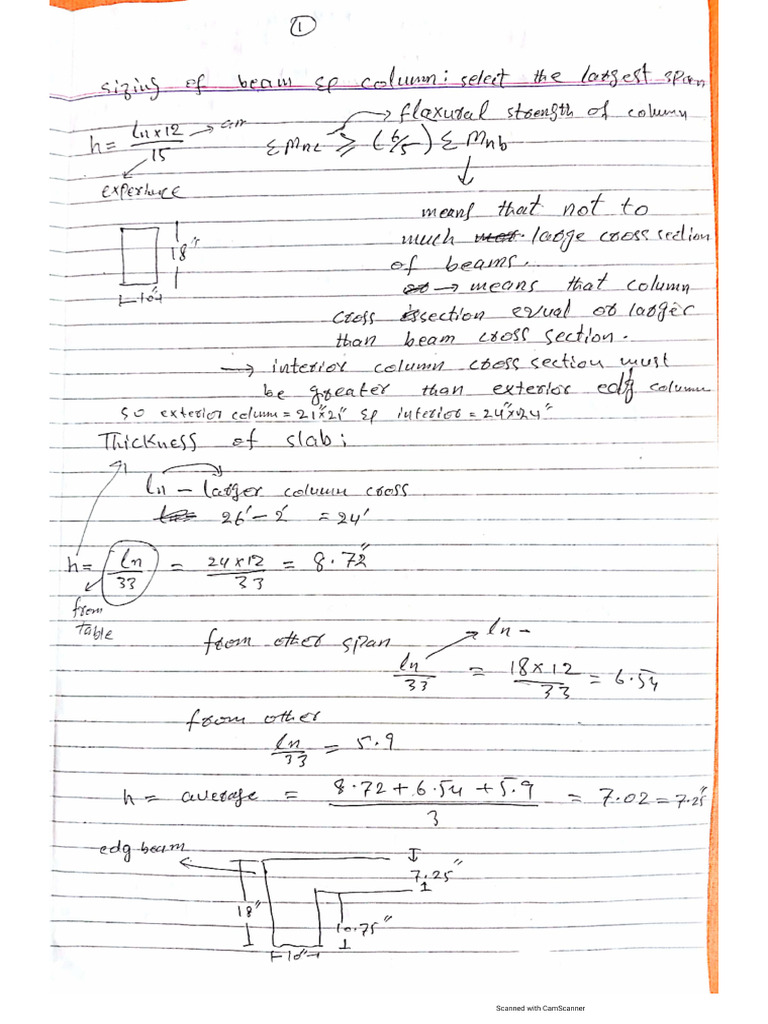 1
sizing of beam & column: select the largest span
h = ln x 12 / 15
→ flaxural strength of column
Σ Mnc ≥ (6/5) Σ Mnb
experience
means that not to
much large cross section
of beams.
→ means that column
cross section equal or larger
than beam cross section.
18"
10"
→ interior column cross section must
be greater than exterior edg column
so exterior column = 21"x21" & interior = 24"x24"
Thickness of slab:
ln - larger column cross
26' - 2' = 24'
h = ln/33 = 24x12/33 = 8.72"
from
table
from other span
→ ln -
ln/33 = 18x12/33 = 6.54
from other
ln/33 = 5.9
h = average = 8.72+6.54+5.9 / 3 = 7.02 = 7.25"
edg beam
7.25"
18"
10.75"
10"
Scanned with CamScanner